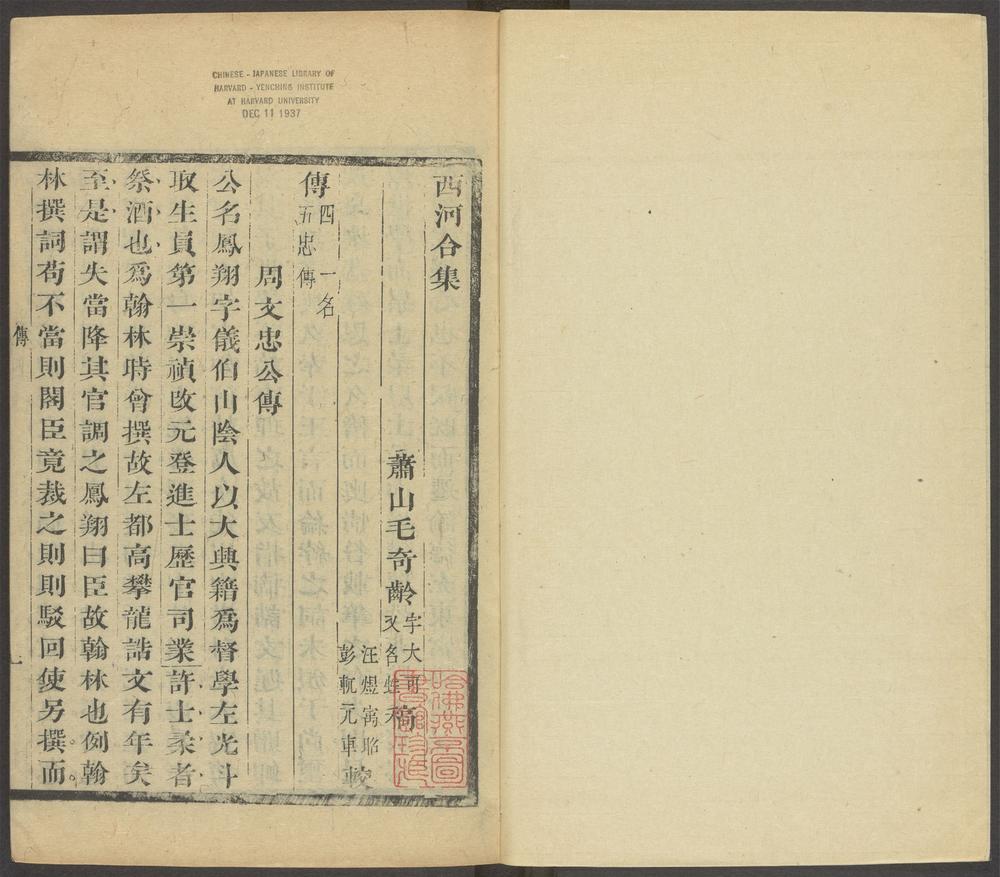 CHINESE - JAPANESE LIBRARY OF
HARVARD - YENCHING INSTITUTE
AT HARVARD UNIVERSITY
DEC 11 1937
西河合集
蕭山毛奇齡字大可又名甡稿
汪煜寓昭
彭軏元車較
傳四 一名五忠傳
周文忠公傳
公名鳳翔字儀伯山陰人以大興籍爲督學左光斗
取生員第一崇禎改元登進士歷官司業許士柔者
祭酒也爲翰林時曾撰故左都高攀龍誥文有年矣
至是謂失當降其官調之鳳翔曰臣故翰林也例翰
林撰詞苟不當則閣臣竟裁之則則駁回使另撰而
傳